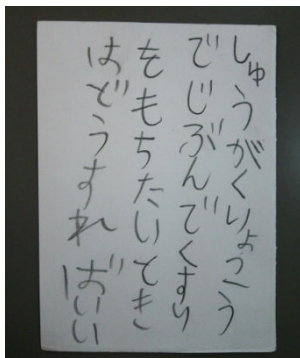 しゅうがくりょこう
でじぶんでくすり
をもちたいとき
はどうすればいい